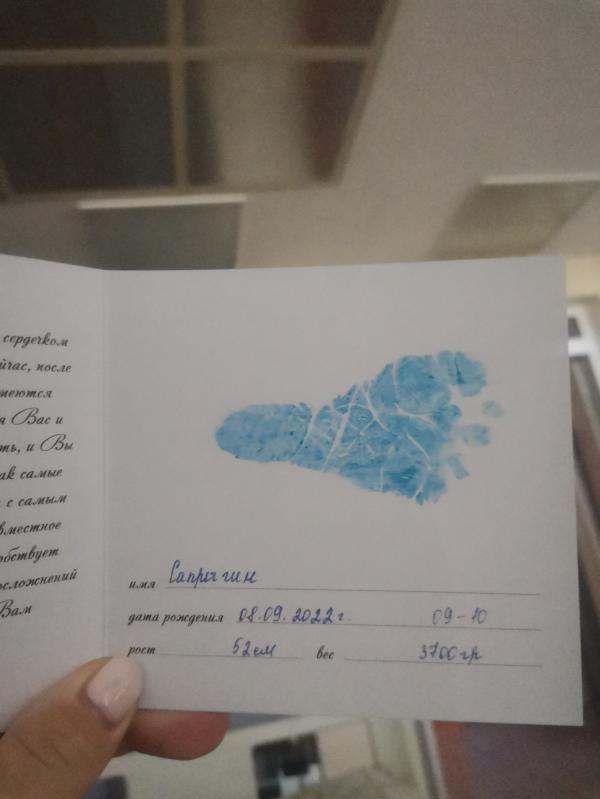 сердечком
йчас, после
меются
я Вас и
ть, и Вы
ак самые
с самым
вместное
обствует
осложнений
Вам
имя Сапрыгин
дата рождения 08.09.2022г. 09-10
рост 52см вес 3700гр